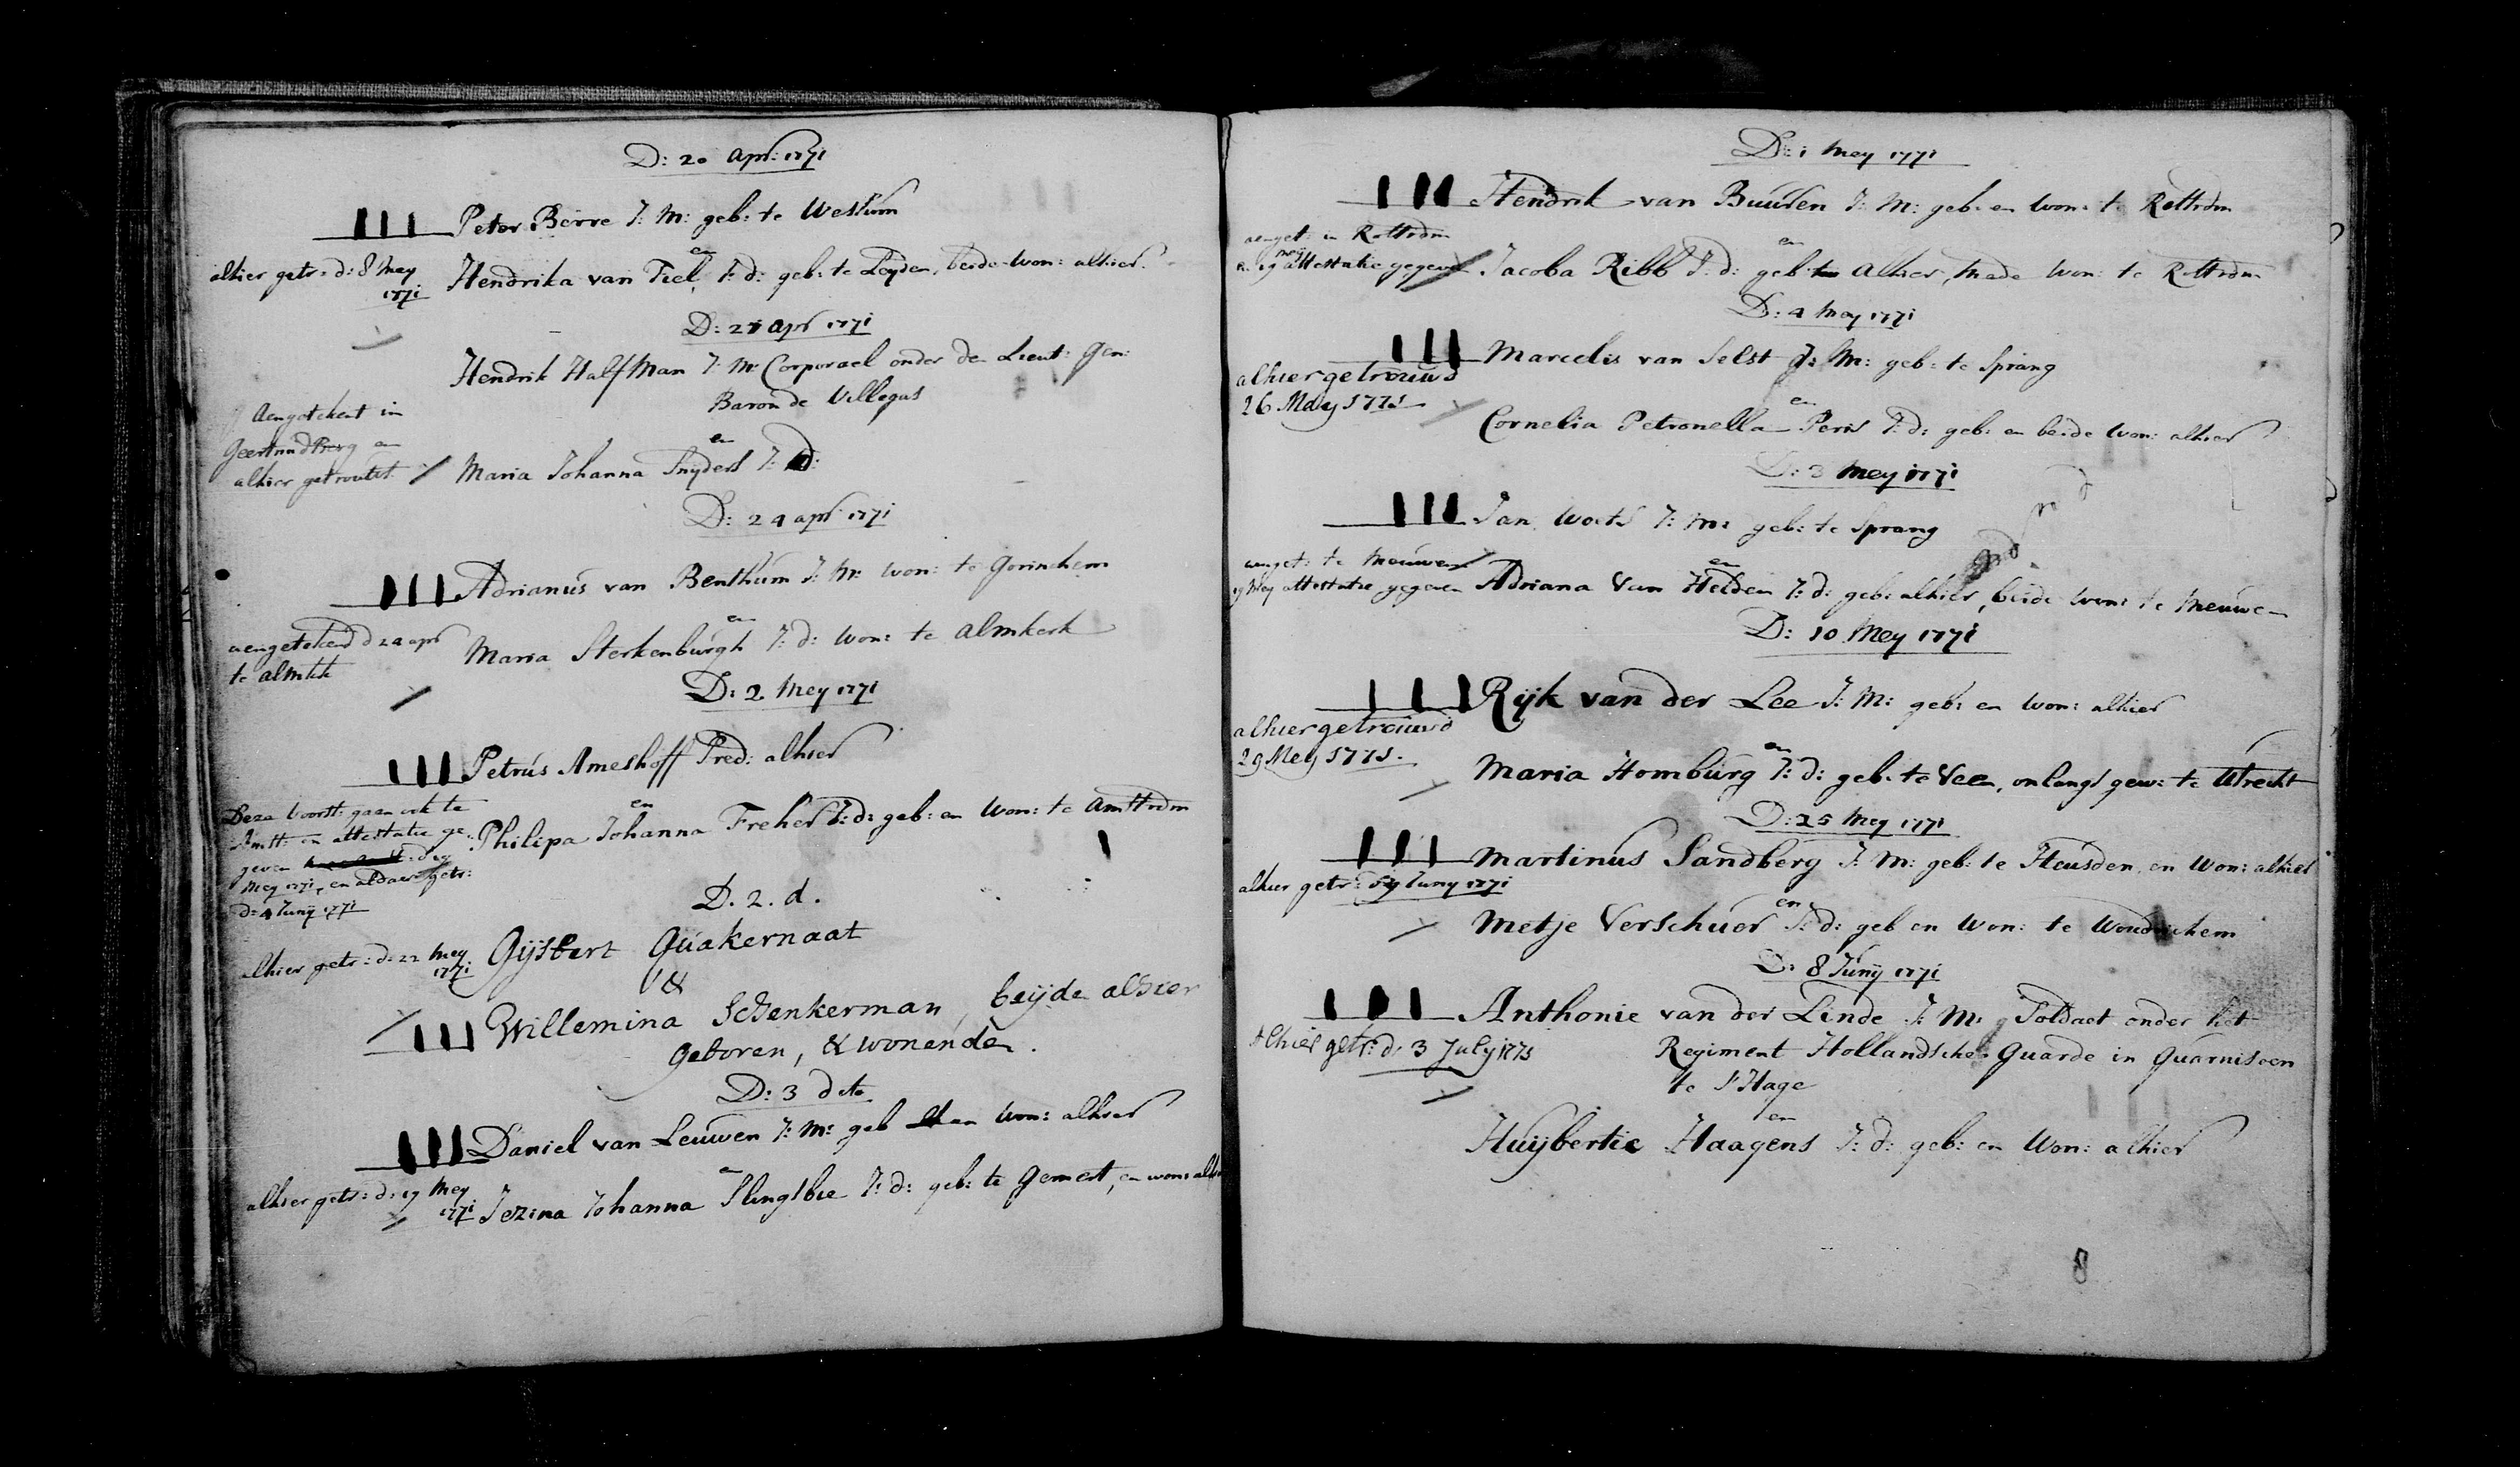 D: 20 Apr: 1771
Peter Berre J: M: geb: te Wessum
en
alhier getr: d: 8 Mey
1771
Hendrika van Tiel, J: d: geb: te Leyden, beide won: alhier.
D: 21 Apr 1771
Hendrik Halfman J: M: Corporael onder den Lieut: Gen:
Baron de Villegas
Aengetekent in
Geertruidberg en
alhier getrouwt
en
Maria Johanna Snyders J: d:
D: 24 apr 1771
Adrianus van Benthum J: M: won: te Gorinchem
en
aengetekend d 24 apr
te almkk
Maria Sterkenburgh J: d: won: te Almkerk
D: 2 Mey 1771
Petrus Ameshoff Pred: alhier
en
Philipa Johanna Freher J: d: geb: en won: te Amstrdm
Deze voorst: gaen ook te
Amst: en attestatie ge:
geven d: 19
Mey 1771, en aldaer getr:
d: 4 Juny 1771
D. 2. d.
alhier getr: d: 22 Mey
1771
Gijsbert Quakernaat
&
Willemina Schenkerman, beijde alhier
geboren, & wonende.
D: 3 dito
Daniel van Leuwen J: M: geb en won: alhier
en
alhier getr: d: 19 Mey
1771
Jezina Johanna Slingsbie J: d: geb: te Gemert, en won: alh
D: 1 Mey 1771
Hendrik van Buuren J: M: geb: en won: te Rottrdm
en
aenget: in Rottrdm
19 Mey attestatie gegeven
Jacoba Ribb J: d: geb: alhier, mede won: te Rottrdm
D: 4 Mey 1771
Marcelis van Selst J: M: geb: te Sprang
alhier getrouwd
26 Mey 1771
en
Cornelia Petronella Peris J: d: geb: en beide won: alhier
D: 3 Mey 1771
Jan Woets J: M: geb: te Sprang
en
aenget: te Meeuwen
19 Mey attestatie gegeven
Adriana van Helden J: d: geb: alhier, beide won: te Meeuwen
D: 10 Mey 1771
Rijk van der Lee J: M: geb: en won: alhier
alhier getrouwd
29 Mey 1771.
en
Maria Homburg J: d: geb: te Veen, onlangs gew: te Utrecht
D: 25 Mey 1771
Martinus Sandberg J: M: geb: te Heusden, en won: alhier
alhier getr: Juny 1771
en
Metje Verschuer J: d: geb en won: te Woudrichem
D: 8 Junij 1771
Anthonie van der Linde J: M: Soldaet onder het
Alhier getr: d: 3 July 1771
Regiment Hollandsche Guarde in Guarnisoen
te s'Hage
en
Huijbertie Haagens J: d: geb: en won: alhier
8